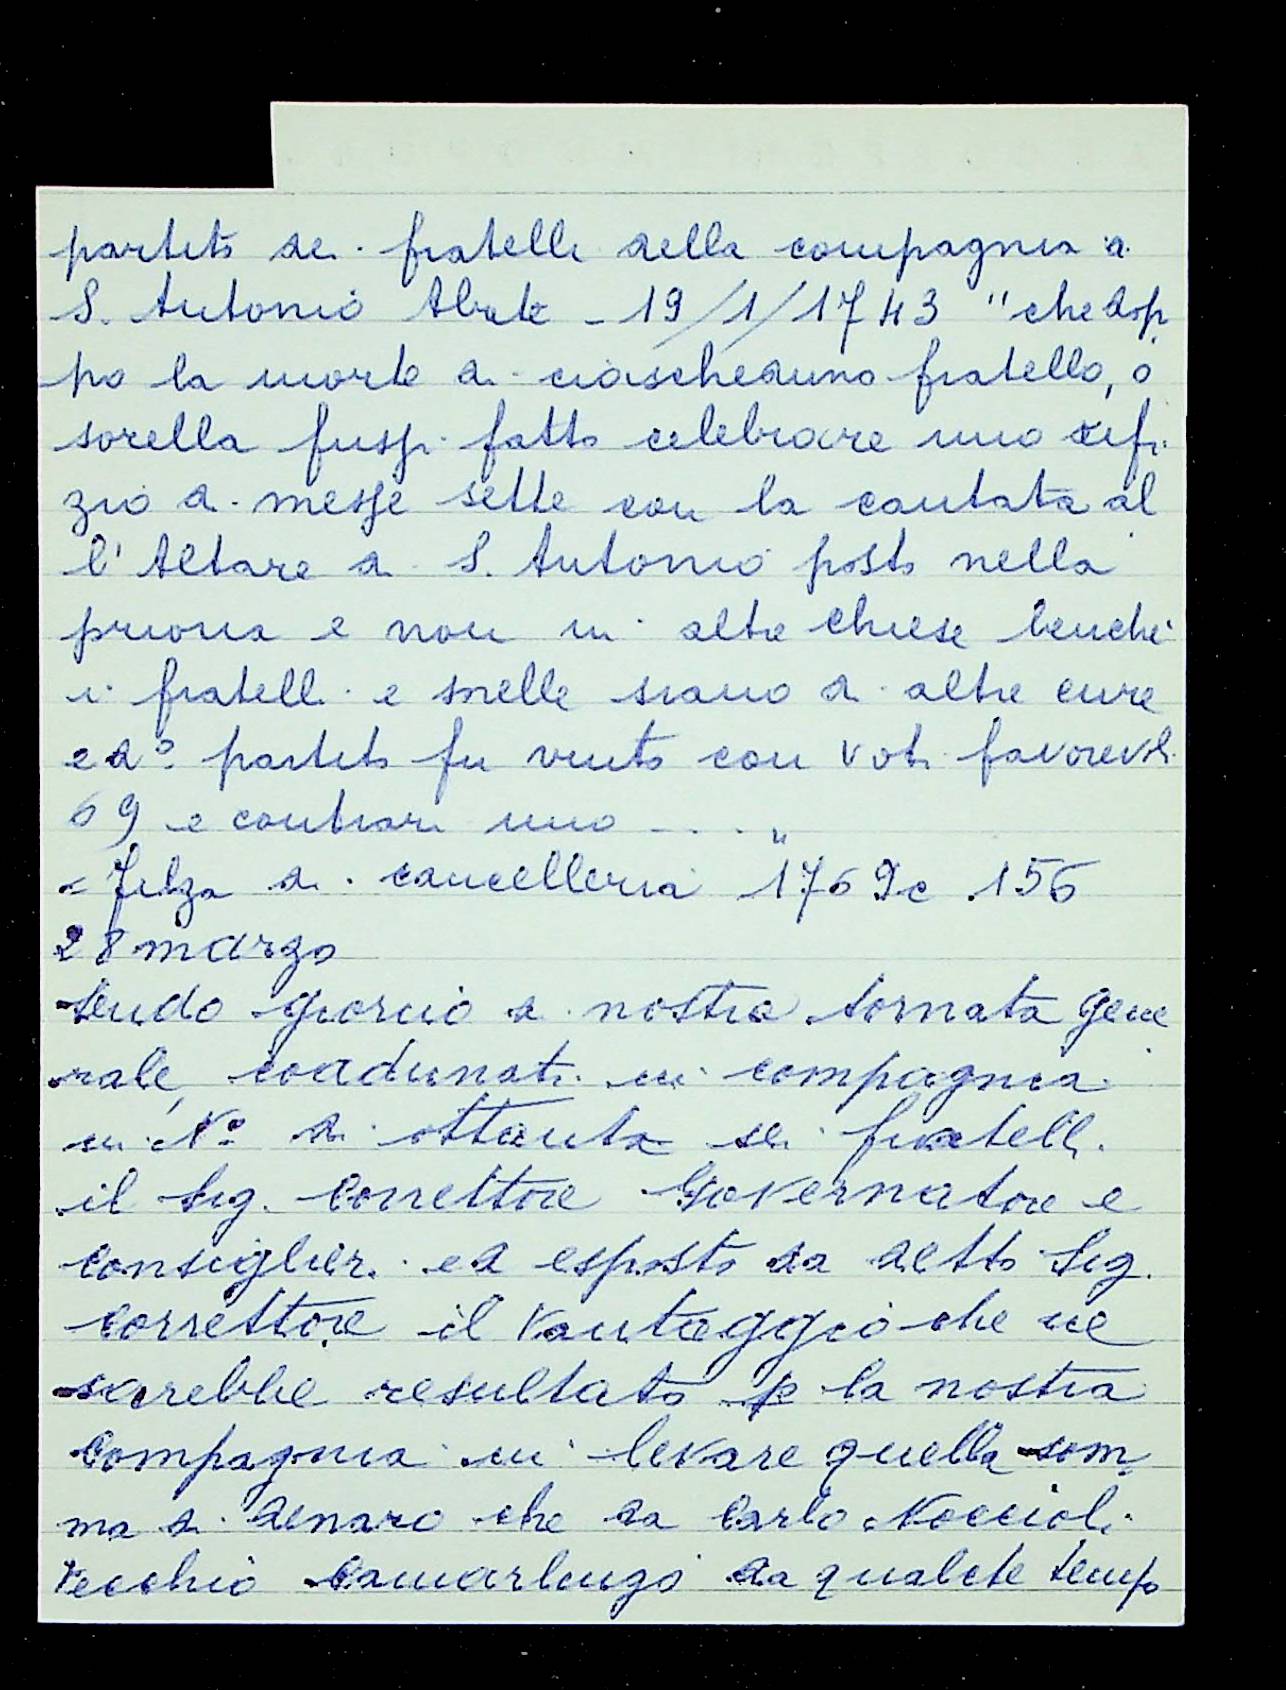 partito dei fratelli della compagnia di
S. Antonio Abate - 19/1/1743 "che dop
po la morte di ciascheduno fratello, o
sorella fussi fatto celebrare uno ufi
zio di messe sette con la cantata al
l'Altare di S. Antonio posto nella
prioria e non in altre chiese benche
i fratelli e sorelle siano di altre cure
e do partito fu vinto con voti favorevoli
69 e contrari uno - . . . "
= Filza di cancelleria 1769 c 156
28 marzo
Sendo giorno di nostra tornata gene
rale, coadunati in compagnia
in No di ottanta sei fratelli
il Sig. Correttore Governatore e
Consiglieri ed esposto da detto Sig.
Correttore il vantaggio che ne
sarebbe resultato p la nostra
Compagnia in levare quella som
ma di denaro che da Carlo Noccioli
vecchio Camarlingo da qualche tempo